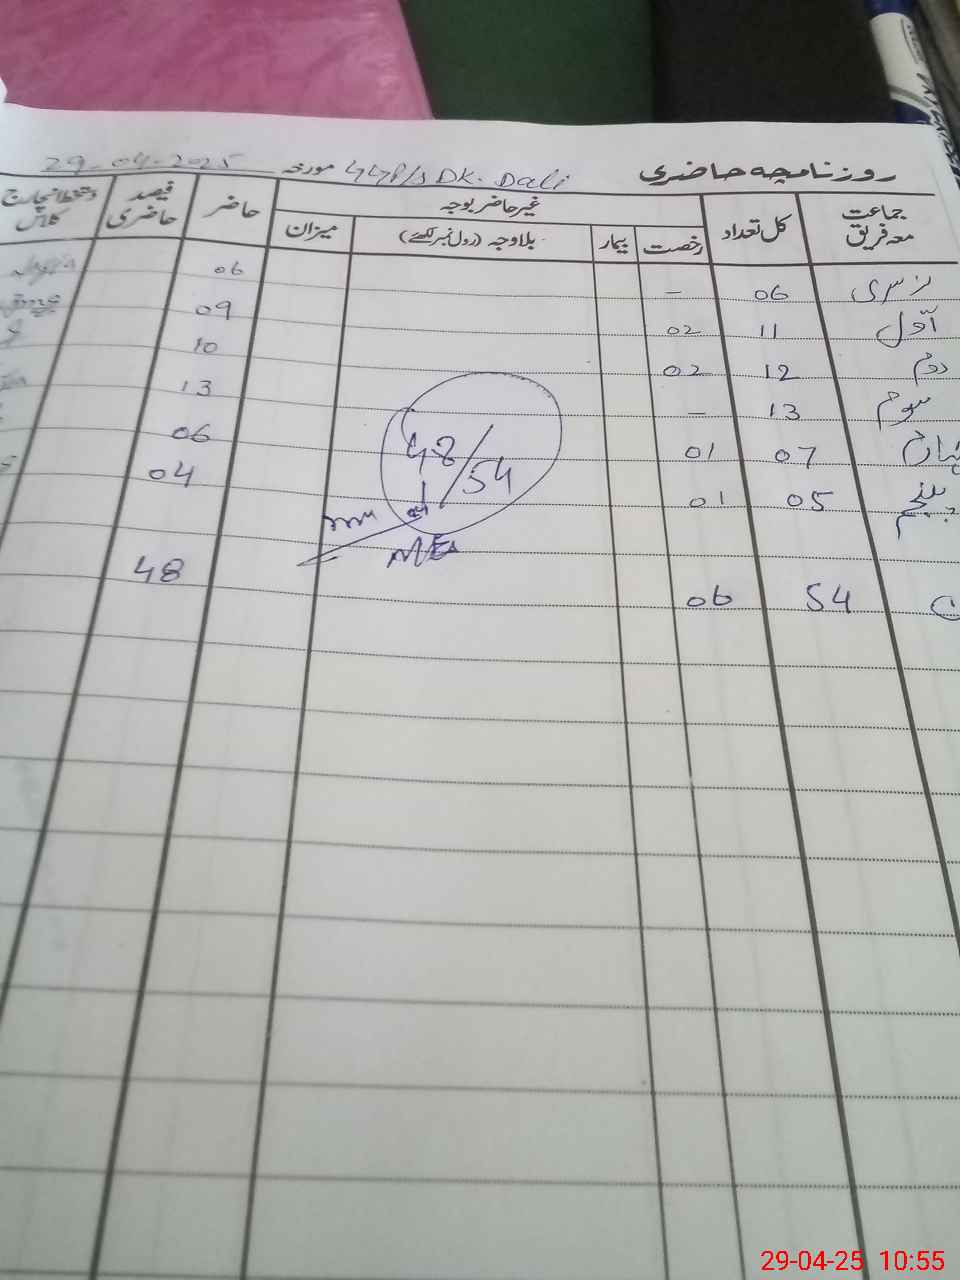 روزنامچہ حاضری GGP/S DK. Dali مورخہ 29-04-2025
جماعت معہ فریق کل تعداد غیر حاضر بوجہ حاضر فیصد حاضری دستخط انچارج کلاس
رخصت بیمار بلاوجہ (رول نمبر لکھئے) میزان
نرسری 06 - 06
اوّل 11 02 09
دوم 12 02 10
سوم 13 - 13
چہارم 07 01 06
پنجم 05 01 04
54 06 48
48/54
29-04-25 10:55